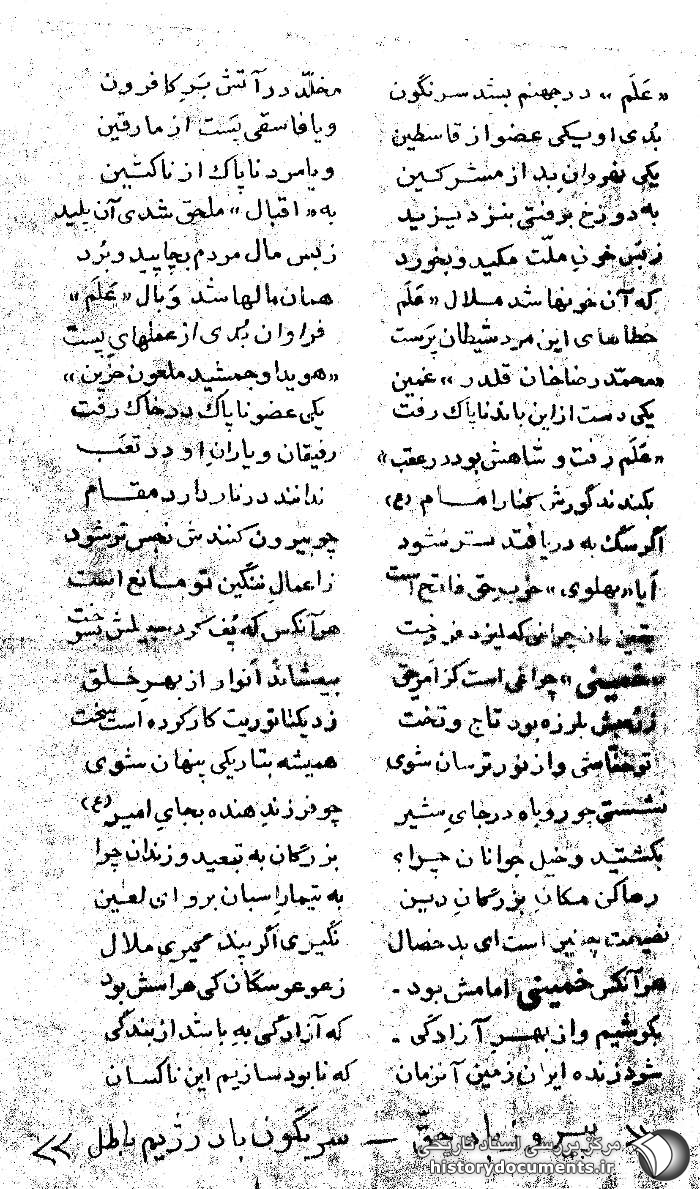 «عَلَم» در جهنم بشد سرنگون مخلّد در آتش بَرِ کافرون
بُدی او یکی عضو از قاسطین و یا فاسقی پَست از مارقین
یکی بود از مشرکین و یا مرد ناپاک از ناکثین
به دوزخ برفتی بنزد یزید به «اقبال» ملحق شدی آن پلید
زبس خونِ ملّت مکید و بخورد زبس مال مردم بچاپید و بُرد
که آن خونها شد ملال «عَلَم همان مالها شد وَبال «عَلَم»
خطاهای این مرد شیطان پَرست فراوان بُدی از عملهای پست
«محمّد رضاخان قلدر» غمین «هویدا و جمشید ملعون حزین»
یکی دست از این باند ناپاک رفت یکی عضو ناپاک در خاک رفت
«عَلَم رفت و شاهش بود در عقب» رفیقان و یارانِ او در تعَب
بکندند گورش کنار امام (ع) ندانند در نار دارد مقام
اگر سگ به دریا فتد تر شود چو بیرون کنندش نجس تر شود
آیا «پهلوی» حزب حق فاتح است ز اعمالِ ننگین تو مانع است
چراغی که ایزد فروخت هر آنکس که پُف کرد سبیلش بسوخت
«خمینی» چراغی است کز امرِ حق بیفشاند أنوار از بهرِ خلق
زرعبش بلرزه بود تاج و تخت ز دیکتاتوریت کار کرده است سخت
تو خفّاشی و از نور ترسان شوی همیشه بتاریکی پنهان شوی
نشستی چو روباه در جایِ شیر چو فرزندِ هنده بجایِ امیر (ع)
بکشتید و خیل جوانان چرا؟ بزرگان به تبعید و زندان چرا
رها کن مکانِ بزرگانِ دین به تیمارِ اسبان برو ای لعین
نصیحت چنین است ای بد خصال نَگیری اگر پند، گیری ملال
هر آنکس خمینی امامش بود - ز عوعو سگان کی هراسش بود
بکوشیم و از بهرِ آزادگی - که آزادگی بِه باشد از بندگی
شود زنده ایران زمین آنزمان که نابود سازیم این ناکسان
«پیروز باد حقّ — سرنگون باد رژیم باطل»
مرکز بررسی اسناد تاریخی
historydocuments.ir